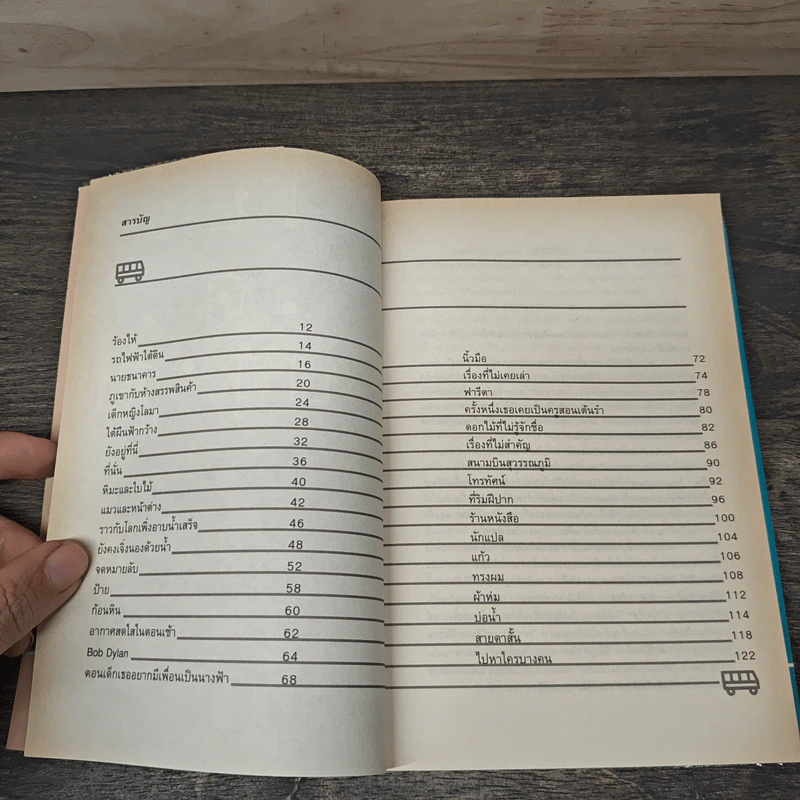 สารบัญ
ร้องไห้ 12
รถไฟฟ้าใต้ดิน 14
นายธนาคาร 16
ภูเขากับห้างสรรพสินค้า 20
เด็กหญิงโลมา 24
ใต้ผืนฟ้ากว้าง 28
ยังอยู่ที่นี่ 32
ที่นั่น 36
หิมะและใบไม้ 40
แมวและหน้าต่าง 42
ราวกับโลกเพิ่งอาบน้ำเสร็จ 46
ยังคงเจิ่งนองด้วยน้ำ 48
จดหมายลับ 52
ป้าย 58
ก้อนหิน 60
อากาศสดใสในตอนเช้า 62
Bob Dylan 64
ตอนเด็กเธออยากมีเพื่อนเป็นนางฟ้า 68
นิ้วมือ 72
เรื่องที่ไม่เคยเล่า 74
ฟารีดา 78
ครั้งหนึ่งเธอเคยเป็นครูสอนเต้นรำ 80
ดอกไม้ที่ไม่รู้จักชื่อ 82
เรื่องที่ไม่สำคัญ 86
สนามบินสุวรรณภูมิ 90
โทรทัศน์ 92
ที่ริมฝีปาก 96
ร้านหนังสือ 100
นักแปล 104
แก้ว 106
ทรงผม 108
ผ้าห่ม 112
บ่อน้ำ 114
สายตาสั้น 118
ไปหาใครบางคน 122